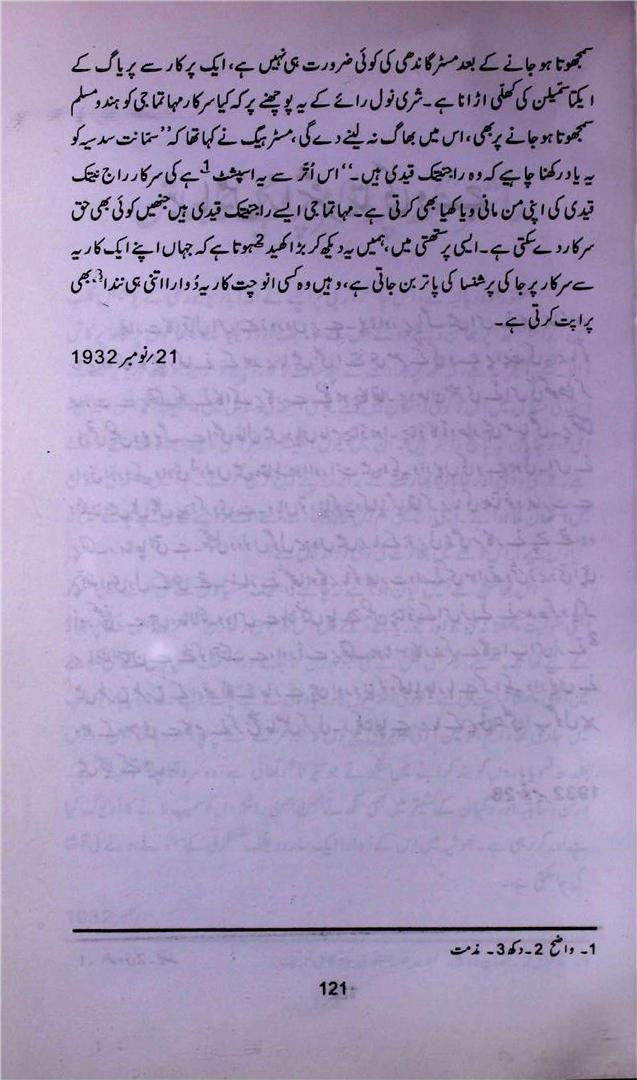 سمجھوتا ہو جانے کے بعد مسٹر گاندھی کی کوئی ضرورت ہی نہیں ہے، ایک پرکار سے پریاگ کے
ایکتا سمیلن کی کھلّی اڑانا ہے۔ شری نول رائے کے یہ پوچھنے پر کہ کیا سرکار مہاتما جی کو ہندو مسلم
سمجھوتا ہو جانے پر بھی، اس میں بھاگ نہ لینے دے گی، مسٹر ہیگ نے کہا تھا کہ ”سمّانت سدسیہ کو
یہ یاد رکھنا چاہیے کہ وہ راجنیتک قیدی ہیں۔“ اس اُتّر سے یہ اسپشٹ1 ہے کی سرکار راج نیتک
قیدی کی اپنی من مانی ویاکھیا بھی کرتی ہے۔ مہاتما جی ایسے راجنیتک قیدی ہیں جنھیں کوئی بھی حق
سرکار دے سکتی ہے۔ ایسی پرستھتی میں، ہمیں یہ دیکھ کر بڑا کھید2 ہوتا ہے کہ جہاں اپنے ایک کاریہ
سے سرکار پرجا کی پرشنسا کی پاتر بن جاتی ہے، وہیں وہ کسی انوچت کاریہ دُوارا اتنی ہی نندا3 بھی
پراپت کرتی ہے۔
21؍نومبر 1932
1۔ واضح 2۔ دکھ 3۔ مذمت
121